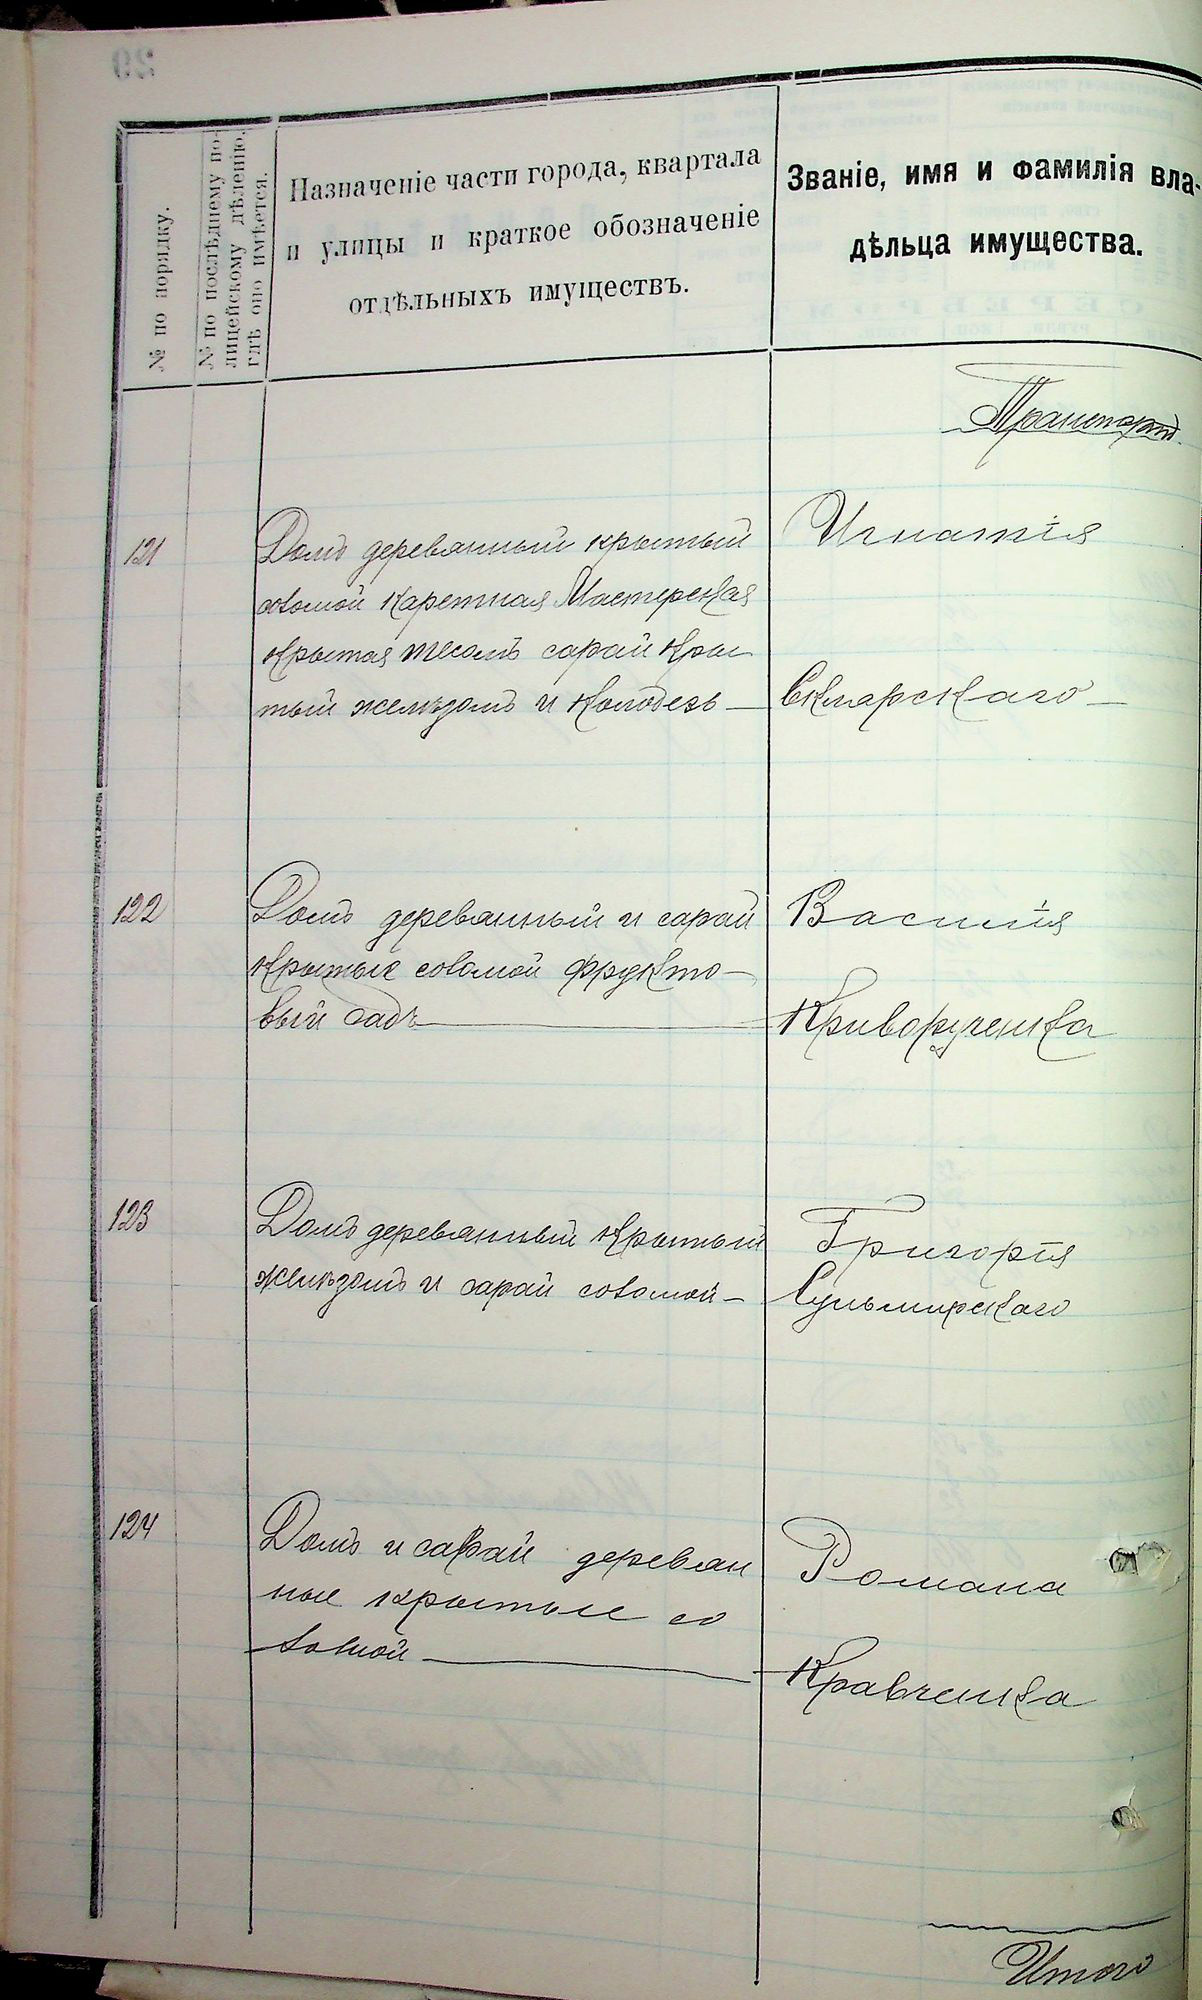 29
№ по порядку.
№ по послѣднему по-
лицейскому дѣленію,
гдѣ оно имѣется.
Назначеніе части города, квартала
и улицы и краткое обозначеніе
отдѣльныхъ имуществъ.
Званіе, имя и фамилія вла-
дѣльца имущества.
Транспортъ
121
Домъ деревянный крытый
соломой каретная Мастерская
крытая тесомъ сарай кры
тый желѣзомъ и колодезь —
Игнатія
Склярскаго —
122
Домъ деревянный и сарай
крытые соломой фрукто-
вый садъ —
Василія
Криворученка
123
Домъ деревянный крытый
желѣзомъ и сарай соломой —
Григорія
Сульмирскаго
124
Домъ и сарай деревян
ные крытые со
ломой —
Романа
Кравченка
Итого